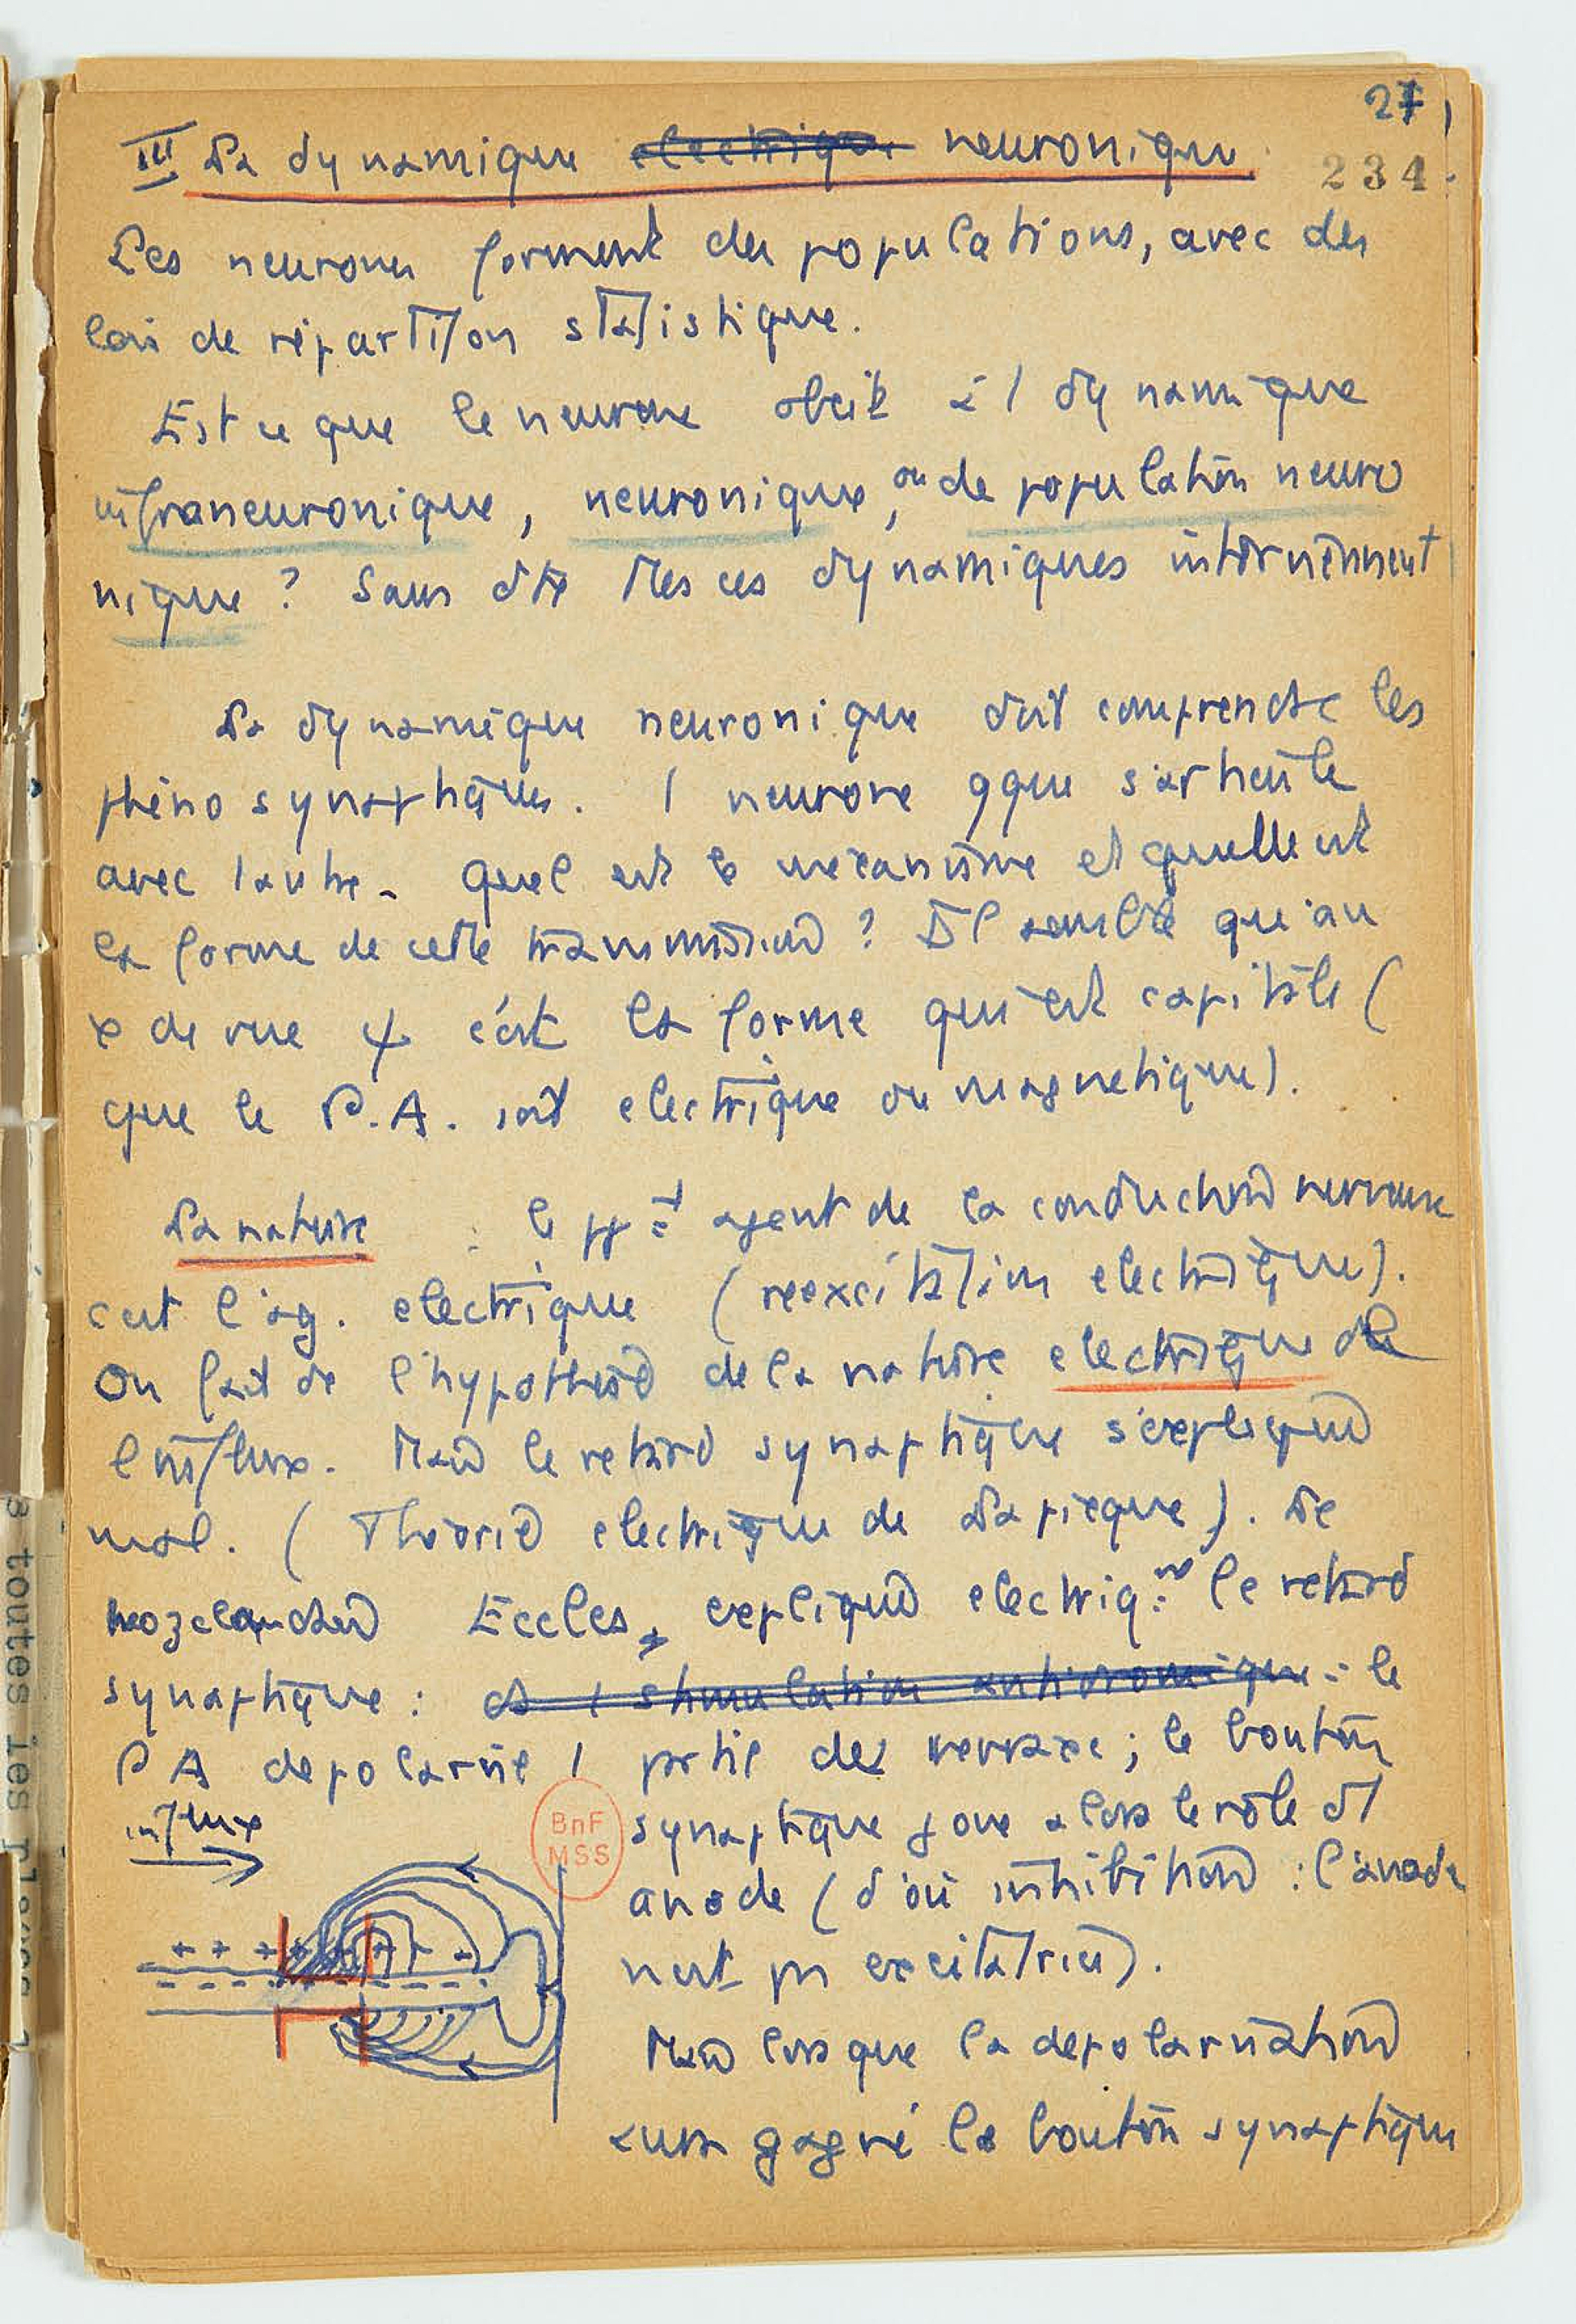 27
234
III La dynamique electrique neuronique
Les neurones forment des populations, avec des
lois de répartition statistique.
Est ce que le neurone obeit à 1 dynamique
infraneuronique, neuronique, ou de population neuro
nique ? Sans dte ttes ces dynamiques interviennent
La dynamique neuronique doit comprendre les
phéno synaptiques. 1 neurone qque s'articule
avec 1 autre. Quel est le mécanisme et quelle est
la forme de cette transmission ? Il semble qu'au
x de vue ψ c'est la forme qui est capitale (
que le P.A. soit electrique ou magnetique).
La nature : le agent de la conduction nerveuse
c'est l'ag. electrique (reexcitation electrique).
On fait de l'hypothèse de la nature electrique de
l'influx. Mais le retard synaptique s'explique
mal. (Théorie electrique de Lapicque). Le
Eccles, explique electriq. le retard
synaptique : stimulation antidromique : le
P A depolarise 1 partie des ; le bouton
influx
synaptique joue alors le rôle d'1
anode (d'où inhibition : l'anode
n'est pas excitatrice).
BnF
MSS
+ + + + + +
Mais lorsque la depolarisation
aura gagné le bouton synaptique